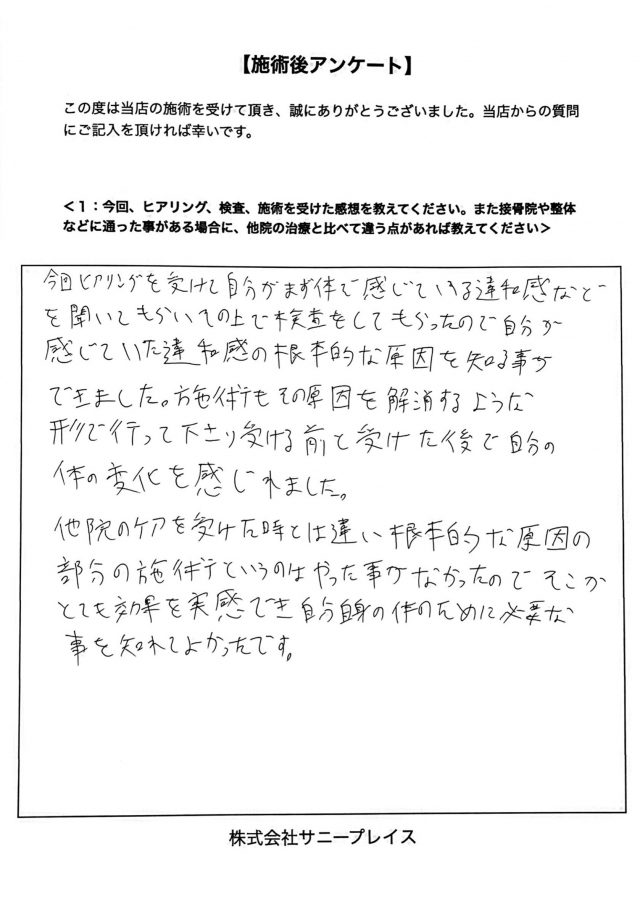 【施術後アンケート】
この度は当店の施術を受けて頂き、誠にありがとうございました。当店からの質問
にご記入を頂ければ幸いです。
＜１：今回、ヒアリング、検査、施術を受けた感想を教えてください。また接骨院や整体
などに通った事がある場合に、他院の治療と比べて違う点があれば教えてください＞
今回ヒアリングを受けて自分がまず体で感じている違和感など
を聞いてもらいその上で検査をしてもらったので自分が
感じていた違和感の根本的な原因を知る事が
できました。施術もその原因を解消するような
形で行って下さり受ける前と受けた後で自分の
体の変化を感じれました。
他院のケアを受けた時とは違い根本的な原因の
部分の施術というのはやった事がなかったのでそこが
とても効果を実感でき自分自身の体のために必要な
事を知れてよかったです。
株式会社サニープレイス